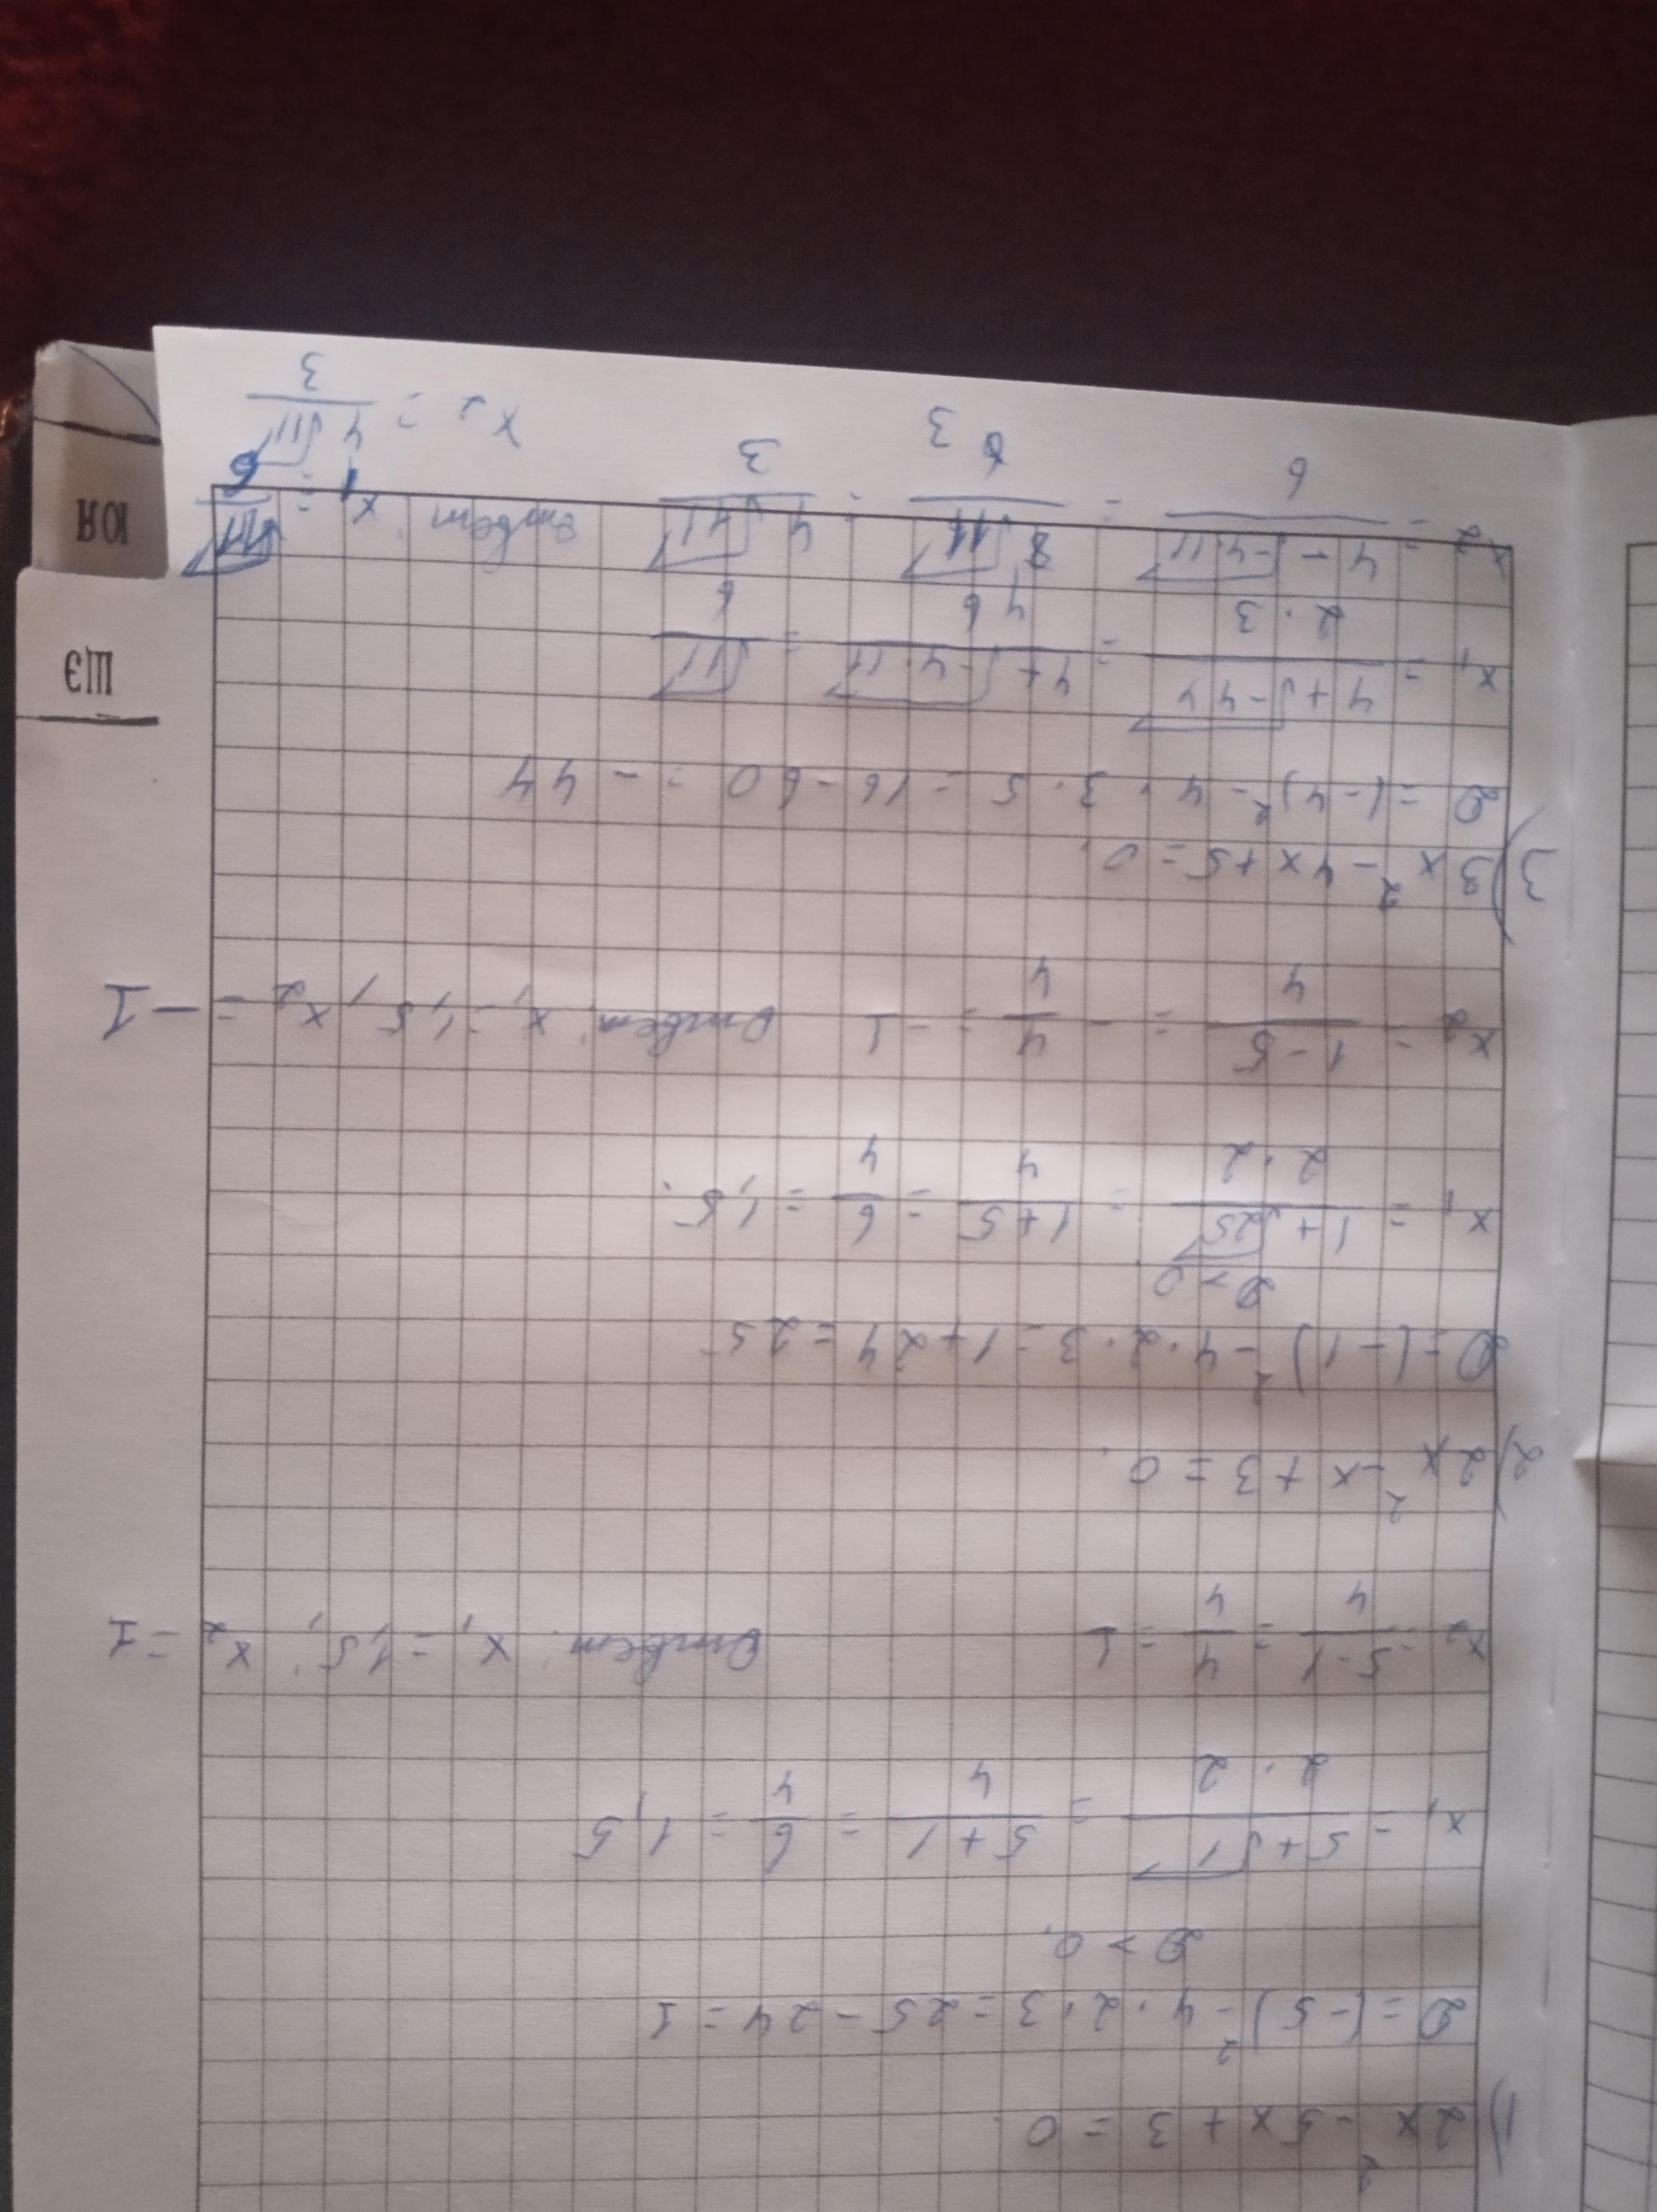 1) 2x² - 5x + 3 = 0.
D = (-5)² - 4 · 2 · 3 = 25 - 24 = 1
D > 0.
x₁ = (5 + √1)/(2 · 2) = (5 + 1)/4 = 6/4 = 1,5
x₂ = (5 - 1)/4 = 4/4 = 1 Ответ: x₁ = 1,5; x₂ = 1
2) 2x² - x + 3 = 0.
D = (-1)² - 4 · 2 · 3 = 1 + 24 = 25
D > 0
x₁ = (1 + √25)/(2 · 2) = (1 + 5)/4 = 6/4 = 1,5.
x₂ = (1 - 5)/4 = -4/4 = -1 Ответ: x₁ = 1,5, x₂ = -1
3) 3x² - 4x + 5 = 0.
D = (-4)² - 4 · 3 · 5 = 16 - 60 = -44
x₁ = (4 + √-44)/(2 · 3) = (4 + √-4·11)/6 = √11/6
x₂ = (4 - √-4·11)/6 = √11/3 = 4√11/3 Ответ: x₁ = √11/6
x₂ = 4√11/3